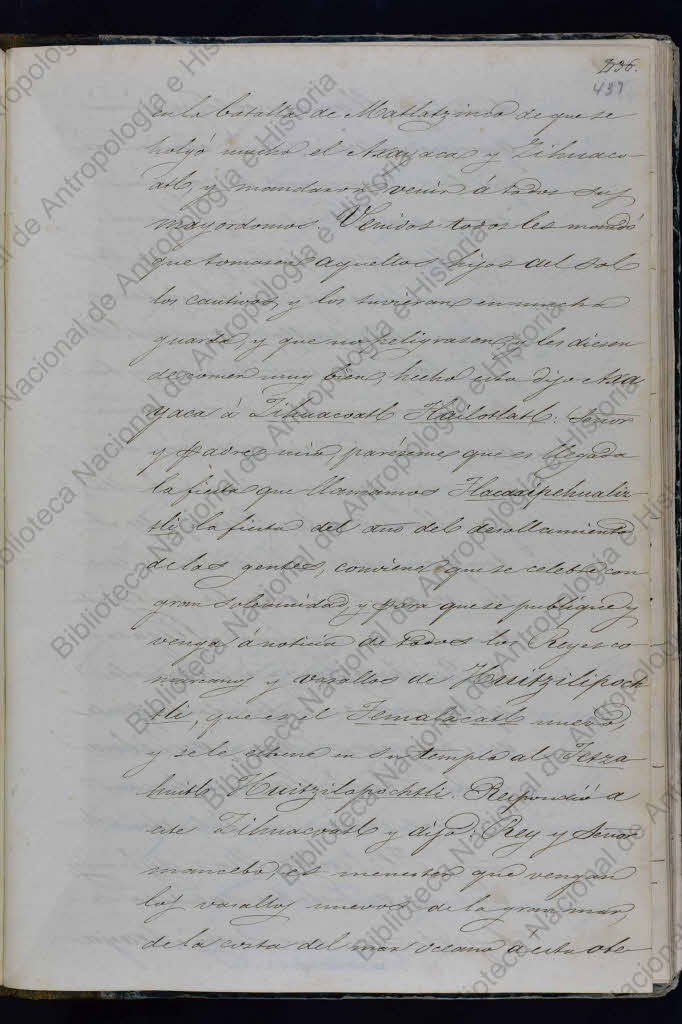 236.
437
en la batalla de Matlatzinco de que se
holgó mucho el Axayaca y Zihuaco-
atl, y mandaron venir á todos sus
mayordomos. Venidos todos les mandó
que tomasen aquellos hijos del sol
los cautivos, y los tuvieran en mucha
guarda, y que no peligrasen, y les diesen
de comer muy bien, hecho esto dijo Axa
yaca á Zihuacoatl Tlailotlatl: Señor
y padre mio, pareseme que es llegada
la fiesta que llamamos Tlacaxipehualiz-
tli, la fiesta del año del desollamiento
de las gentes, conviene que se celebre con
gran solemnidad, y para que se publique y
venga á noticia de todos los Reyes co-
marcanos y vasallos de Huitzilipoch
tli, que es el Temalacatl nuevo,
y se le estrene en su templo al Tetza
huitl Huitzilopochtli. Respondió á
este Zihuacoatl y dijo: Rey y Señor
mancebo, es menester que vengan
los vasallos nuevos de la gran mar,
de la costa del mar oceano á esta obe
Biblioteca Nacional de Antropología e Historia